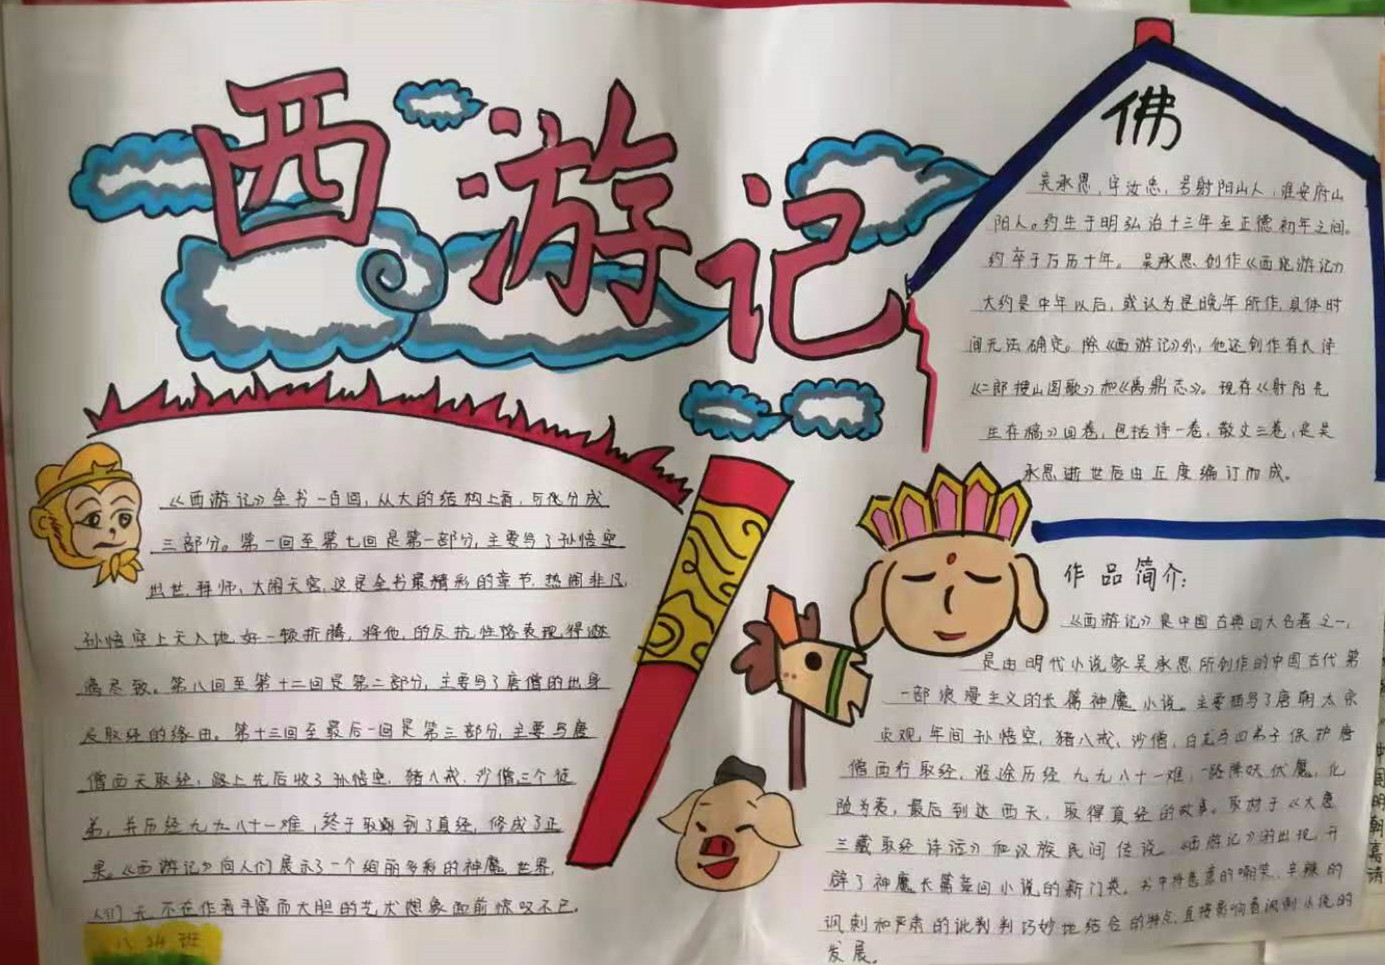 西游记
佛
吴承恩，字汝忠，号射阳山人，淮安府山
阳人。约生于明弘治十三年至正德初年之间。
约卒于万历十年。吴承恩创作《西游记》
大约是中年以后，或认为是晚年所作，具体时
间无法确定。除《西游记》外，他还创作有长诗
《二郎搜山图歌》和《禹鼎志》。现存《射阳先
生存稿》四卷，包括诗一卷，散文三卷，是吴
承恩逝世后由丘度编订而成。
《西游记》全书一百回，从大的结构上看，可以分成
三部分。第一回至第七回是第一部分，主要写了孙悟空
出世，拜师，大闹天宫，这是全书最精彩的章节，热闹非凡，
孙悟空上天入地好一顿折腾，将他的反抗性格表现得淋
漓尽致。第八回至第十二回是第二部分，主要写了唐僧的出身
及取经的缘由。第十三回至最后一回是第三部分，主要写唐
僧西天取经，路上先后收了孙悟空，猪八戒，沙僧三个徒
弟，并历经九九八十一难，终于取到了真经，修成了正
果。《西游记》向人们展示了一个绚丽多彩的神魔世界，
人们无不在作者丰富而大胆的艺术想象面前惊叹不已。
八 班
作品简介：
《西游记》是中国古典四大名著之一，
是由明代小说家吴承恩所创作的中国古代第
一部浪漫主义的长篇神魔小说。主要描写了唐朝太宗
贞观年间孙悟空，猪八戒，沙僧，白龙马四弟子保护唐
僧西行取经，沿途历经九九八十一难，一路降妖伏魔，化
险为夷，最后到达西天，取得真经的故事。取材于《大唐
三藏取经诗话》和汉族民间传说。《西游记》的出现，开
辟了神魔长篇章回小说的新门类。书中将善意的嘲笑、辛辣的
讽刺和严肃的批判巧妙地结合的特点，直接影响着讽刺小说的
发展。
中国明朝嘉靖